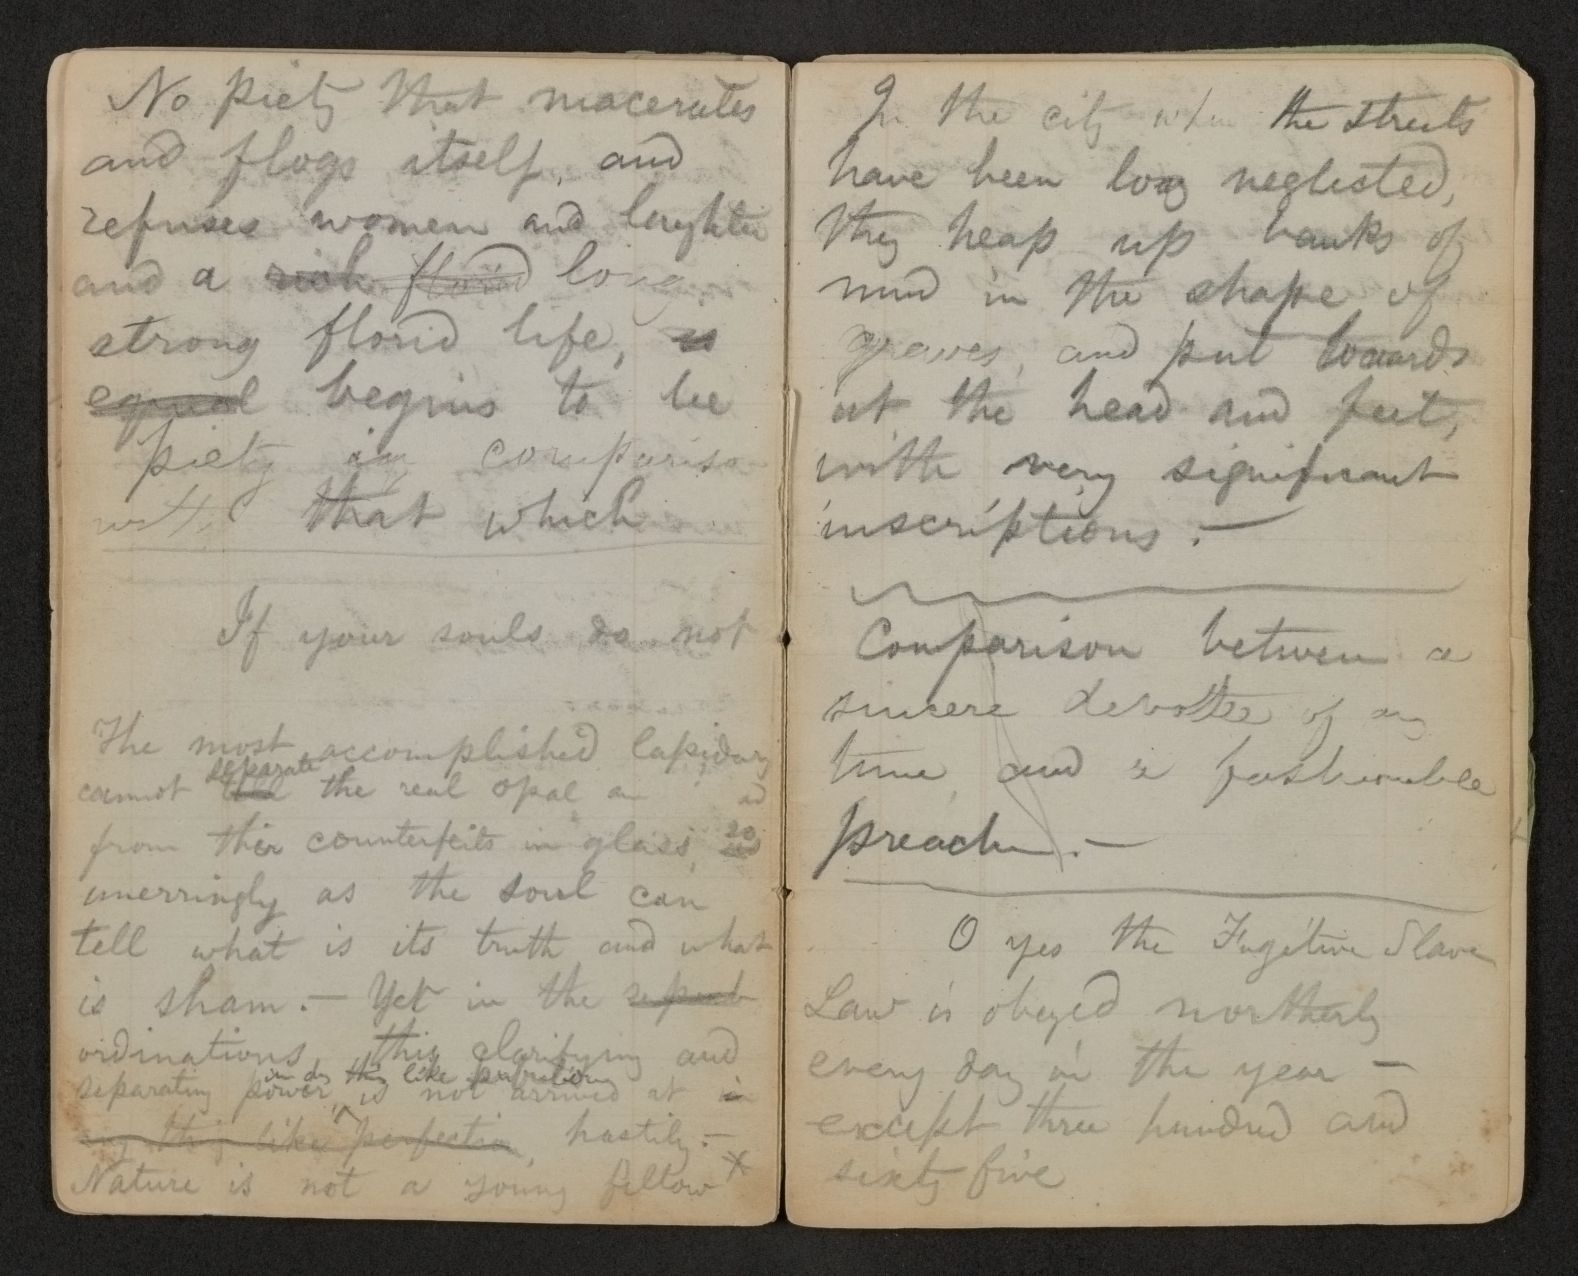 No piety that macerates
and flogs itself, and
refuses women and laughter
and a rich florid long,
strong florid life, is
equal begins to be
piety in comparison
with that which
If your souls do not
The most accomplished lapidary
separate
cannot the real opal an
from their counterfeits in glass, so
unerringly as the soul can
tell what is its truth and what
is sham. — Yet in the
ordinations, this clarifying and
in any thing like
separating power, is not arrived at in
any thing like perfection, hastily. —
Nature is not a young fellow
In the city when the streets
have been long neglected,
they heap up banks of
mud in the shape of
graves, and put boards
at the head and feet,
with very significant
inscriptions. —
Comparison between a
sincere devotee of any
time, and a fashionable
preacher. —
O yes the Fugitive Slave
Law is obeyed northerly
every day in the year —
except three hundred and
sixty five